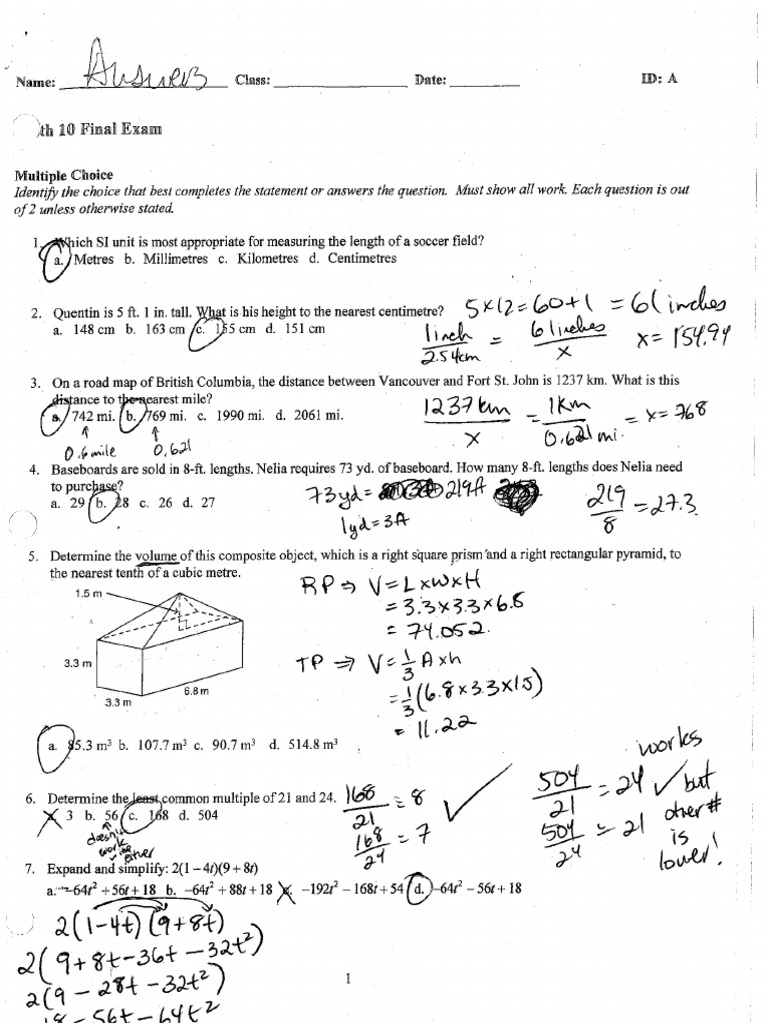 Name: Answers Class: Date: ID: A
th 10 Final Exam
Multiple Choice
Identify the choice that best completes the statement or answers the question. Must show all work. Each question is out
of 2 unless otherwise stated.
1. Which SI unit is most appropriate for measuring the length of a soccer field?
a. Metres b. Millimetres c. Kilometres d. Centimetres
2. Quentin is 5 ft. 1 in. tall. What is his height to the nearest centimetre? 5×12=60+1 = 61 inches
a. 148 cm b. 163 cm c. 155 cm d. 151 cm
1 inch / 2.54cm = 61 inches / x x = 154.94
3. On a road map of British Columbia, the distance between Vancouver and Fort St. John is 1237 km. What is this
distance to the nearest mile?
a. 742 mi. b. 769 mi. c. 1990 mi. d. 2061 mi.
1237 km / x = 1 km / 0.621 mi. = x = 768
0.6 mile 0.621
4. Baseboards are sold in 8-ft. lengths. Nelia requires 73 yd. of baseboard. How many 8-ft. lengths does Nelia need
to purchase?
a. 29 b. 28 c. 26 d. 27
73yd = 219ft 219 / 8 = 27.3
1yd = 3ft
5. Determine the volume of this composite object, which is a right square prism and a right rectangular pyramid, to
the nearest tenth of a cubic metre.
1.5 m
3.3 m
6.8 m
3.3 m
RP ⇒ V = L×W×H
= 3.3×3.3×6.8
= 74.052
TP ⇒ V = 1/3 A×h
= 1/3 (6.8×3.3×1.5)
= 11.22
a. 85.3 m³ b. 107.7 m³ c. 90.7 m³ d. 514.8 m³
6. Determine the least common multiple of 21 and 24.
a. 3 b. 56 c. 168 d. 504
doesn't
work
either
168 / 21 = 8 ✓
168 / 24 = 7
504 / 21 = 24 ✓
504 / 24 = 21
works
but
other #
is
lower!
7. Expand and simplify: 2(1 – 4t)(9 + 8t)
a. –64t² + 56t + 18 b. –64t² + 88t + 18 c. –192t² – 168t + 54 d. –64t² – 56t + 18
2(1-4t)(9+8t)
2(9+8t-36t-32t²)
2(9-28t-32t²)
18-56t-64t²
1